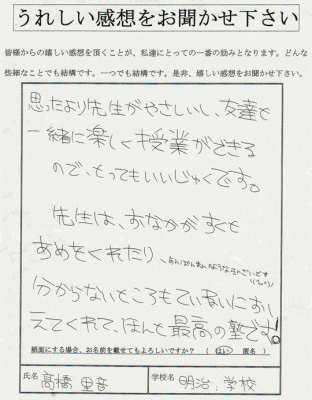 うれしい感想をお聞かせ下さい
皆様からの嬉しい感想を頂くことが、私達にとっての一番の励みとなります。どんな
些細なことでも結構です。一つでも結構です。是非、嬉しい感想をお聞かせ下さい。
思ったより先生がやさしいし、友達と
一緒に楽しく授業ができる
ので、とってもいいじゅくです。
先生は、おなかがすくと
あめをくれたり、あんぱんまんのようなそんざいです
分からないところもていねいにおし
えてくれて、ほんと最高の塾です!
紙面にする場合、お名前を載せてもよろしいですか? ( はい 匿名 )
氏名 高橋 里音
学校名 明治 学校